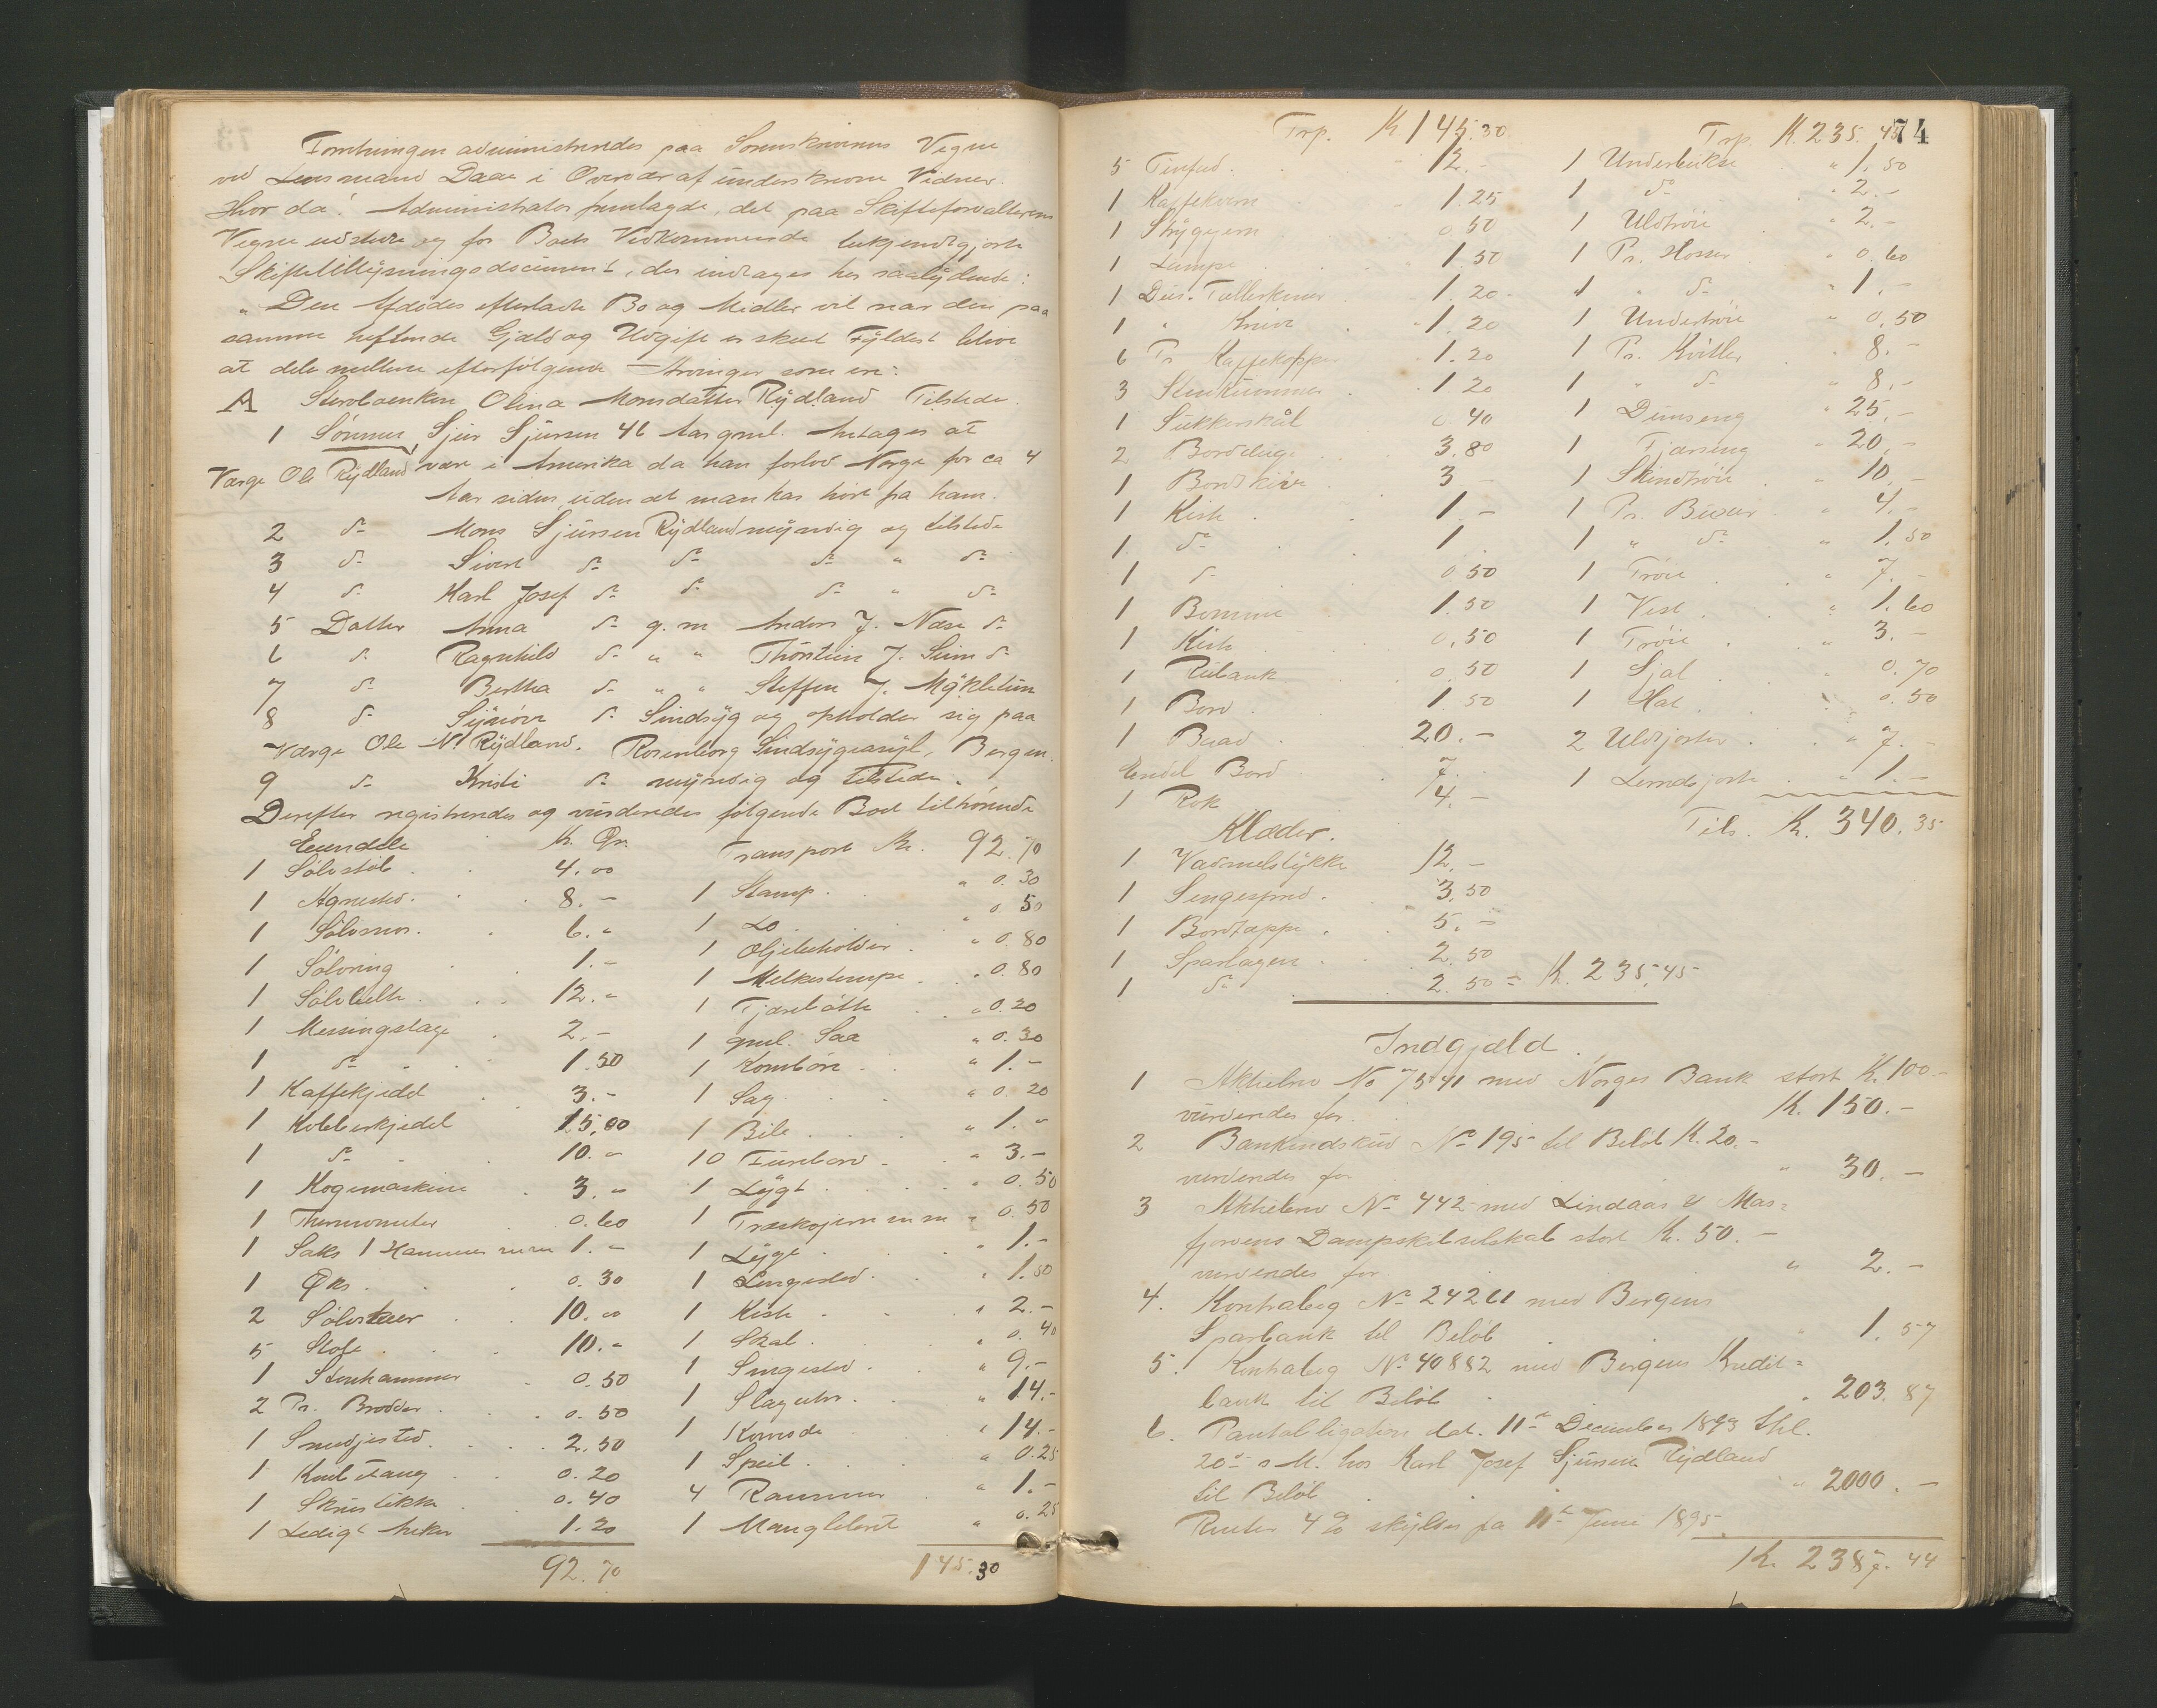 Forretningen administreredes paa Sorenskriverens Vegne
ved Lensmand Daae i Overvær af underskrevne Vidner.
Hvor da: Administrator fremlagde, det paa Skifteforvalterens
Vegne udstedte og for Boets Vedkommende bekjendtgjorte
Skiftetillysningsdocument, der indtages her saalydende:
"Den Afdødes efterladte Bo og Midler vil naar den paa
samme heftende Gjæld og Udgift er skeet Fyldest blive
at dele mellem efterfølgende Arvinger som er:
A Stervboenken Olina Monsdatter Rydland Tilstede.
1 Sönnen, Sjur Sjursen 46 Aar gml. Antages at
Værge Ole Rydland være i Amerika da han forlod Norge for ca 4
Aar siden uden at man har hört fra ham.
2 do Mons Sjursen Rydland myndig og tilstede
3 do Sivert do do do " do
4 do Karl Josef do do do " do
5 Datter Anna do g. m Anders J. Næse do
6 do Ragnhild do " " Thorstein J. Seim do
7 do Bertha do " " Steffen J. Myklebun
8 do do Sindsyg og opholder sig paa
Værge Ole N. Rydland. Rosenborg Sindsygeasyl, Bergen.
9 do Kristi do myndig og tilstede.
Derefter registreredes og vurderedes følgende Boet tilhørende
Eiendele Kr. Ør.
1 Sølvstöb 4.00
1 8.-
1 6.-
1 Sölvring 1.-
1 Sölvbelte 12.-
1 Messingstage 2.-
1 do 1.50
1 Kaffekjedel 3.-
1 Kobberkjedel 15,00
1 do 10.-
1 Kogemaskine 3.-
1 Thermometer 0.60
1 Saks 1 Hammer m m 1.-
1 Øks 0.30
2 Sölvskeer 10.00
5 Stole 10.-
1 Stenhammer 0.50
2 Pr. Brodder 0.50
1 Smedjested 2.50
1 Knibetang 0.20
1 Skrustikke 0.40
1 Ledigt Anker 1.20
92.70
Transport Kr. 92.70
1 Stamp " 0.30
1 do " 0.50
1 Oljebeholder " 0.80
1 Melkestampe " 0.80
1 Tjærebøtte " 0.20
1 gml. Saa " 0.30
1 Kornbøre " 1.-
1 Sag " 0.20
1 Bile " 1.-
10 Furubord " 3.-
1 Lygt " 0.50
1 Træskojern m m " 0.50
1 " 1.-
1 Sengested " 1.50
1 Kiste " 2.-
1 Skab " 0.40
1 Sengested " 9.-
1 Slaguhr " 14.-
1 Komode " 14.-
1 Speil " 0.25
4 Rammer " 1.-
1 Manglebret " 0.25
145.30
74
Trp. Kr 145.30
5 Tinfad 12.-
1 Kaffekvern 1.25
1 Strygjern 0.50
1 Lampe 1.50
1 Dus. Tallerkener 1.20
1 " Knive 1.20
6 Pr Kaffekopper 1.20
3 Stenkummer 1.20
1 Sukkerskål 0.40
2 Borddüge 3.80
1 Bordskive 3 -
1 Kiste 1.-
1 do 1
1 do 0.50
1 Bomme 1.50
1 Kiste 0.50
1 Rübank 0.50
1 Bord 1.50
1 Baad 20.-
Endel Bord 7.-
1 Rok 4.-
Klæder.
1 Vadmelstykke 12.-
1 Sengespred 3.50
1 Bordtæppe 5.-
1 Sparlagen 2.50
1 do 2.50 = Kr. 235.45
Trp. Kr. 235.45
1 Underbukse " 1.50
1 do " 2.-
1 Uldtröie " 2.-
1 Pr. Hoser " 0.60
1 " do " 1.-
1 Undertröie " 0.50
1 Pr. Kvitler " 8.-
1 " do " 8.-
1 Dunseng " 25.-
1 Fjærseng " 20.-
1 Skindtröie " 10.-
1 Pr. Buxer " 4.-
1 " do " 1.50
1 Tröie " 7.-
1 Vest " 1.60
1 Tröie " 3.-
1 Sjal 0.70
1 Hat 0.50
2 Uldskjorter " 7.-
1 Lerredsskjorte " 1.-
Tils. Kr. 340.35
Indgjæld.
1 Aktiebrev No 7541 med Norges Bank stort Kr. 100.-
vurderedes for Kr. 150.-
2 Bankindskud No 195 til Beløb Kr. 20.-
vurderedes for " 30.-
3 Aktiebrev No 442 med Lindaas & Mas=
fjordens Dampskibsselskab stort Kr. 50.-
vurderedes for " 2.-
4. Kontrabog No med Bergens
Sparbank til Beløb 1.57
5. Kontrabog No 40882 med Bergens Kredit=
bank til Beløb " 203.87
6. Pantobligation dat. 11te December 1893 thl.
20de s. M. hos Karl Josef Sjursen Rydland
til Beløb " 2000.-
Renter 4 % skyldes fra 11te Juni 1895
Kr. 2387.44